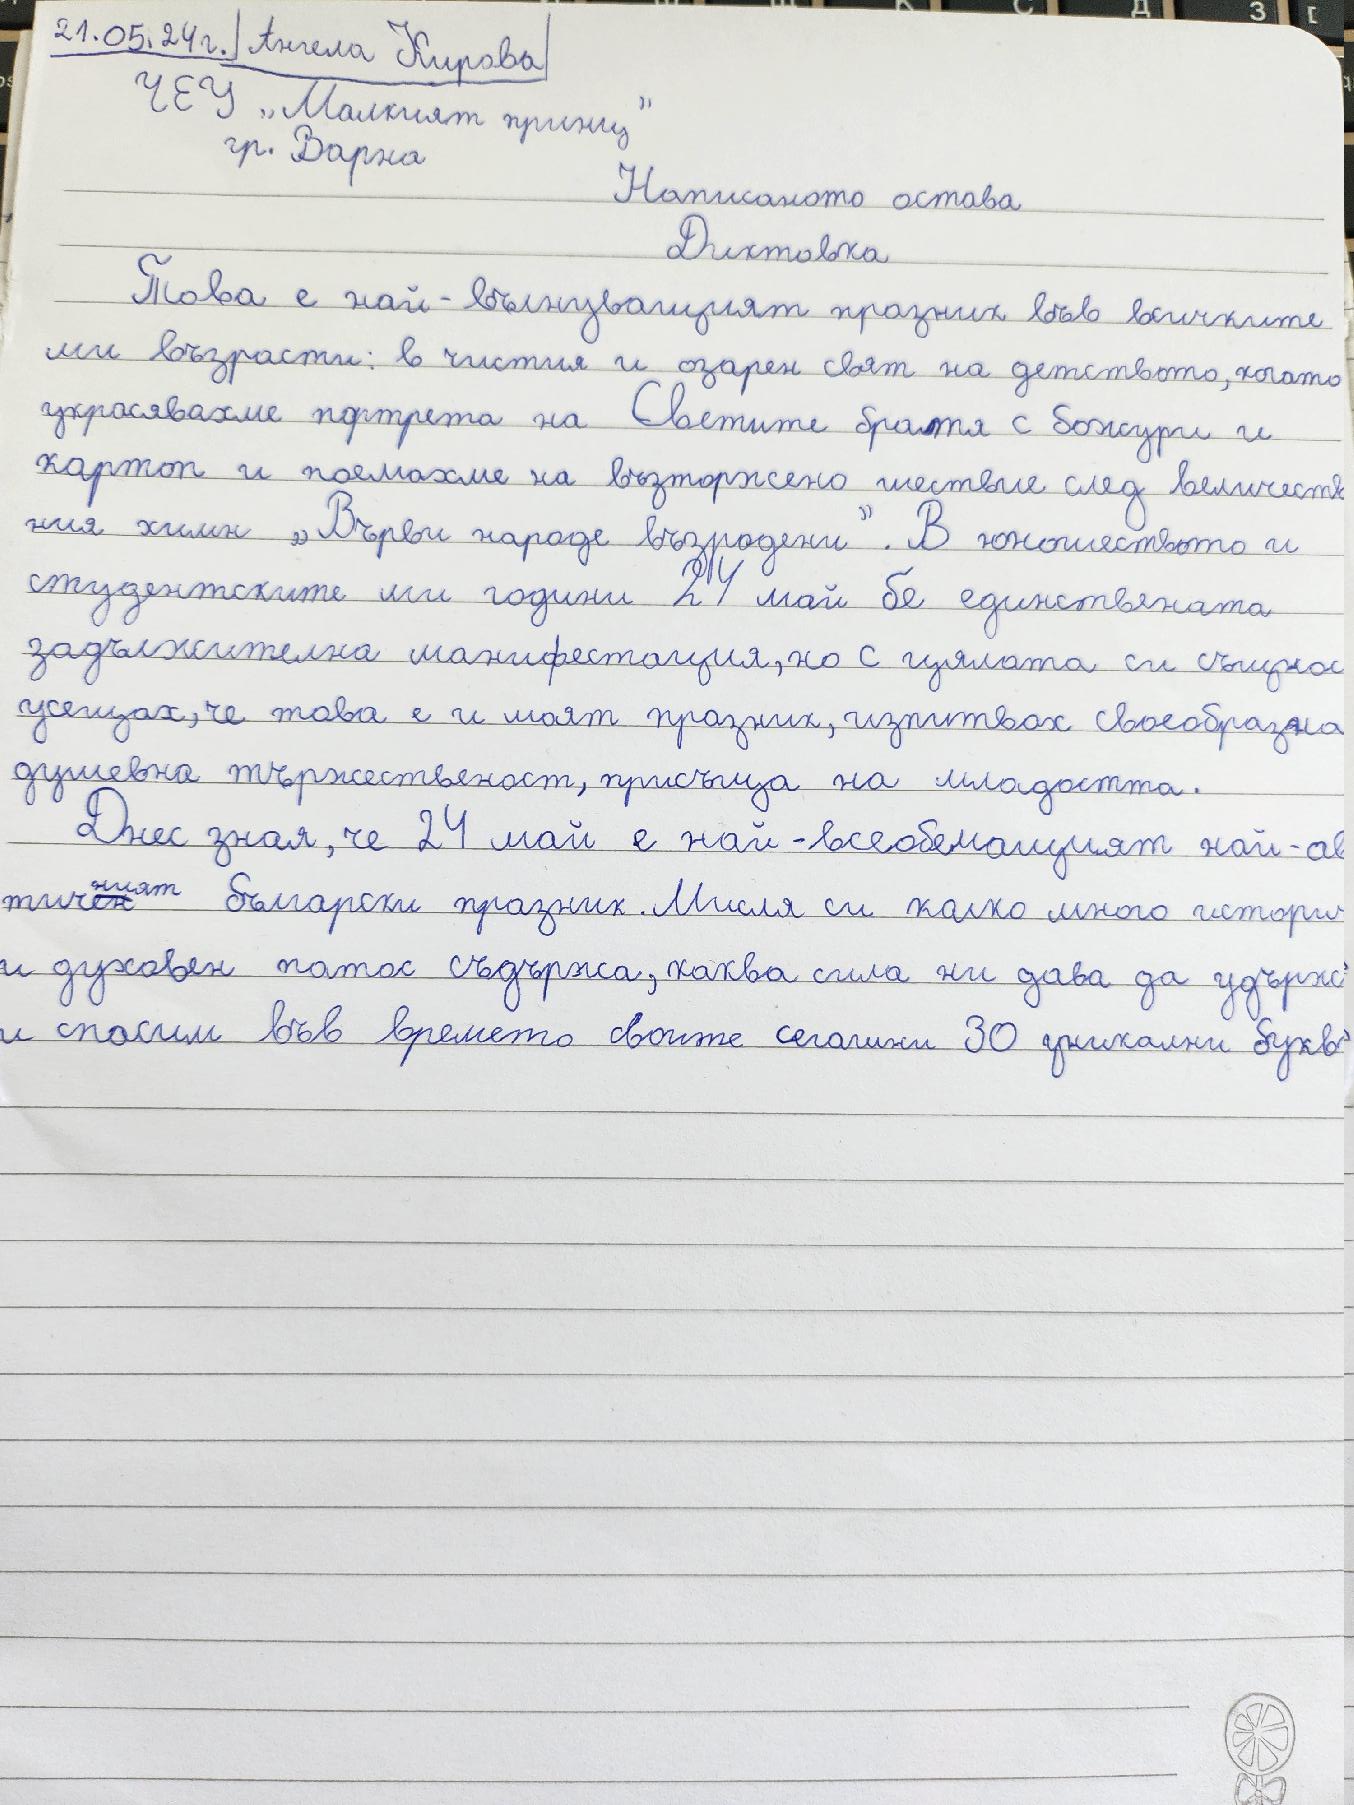 21.05.24г. Ангела Кирова
ЧЕУ „Малкият принц"
гр. Варна
Написаното остава
Диктовка
Това е най-вълнуващият празник във всичките
ми възрасти: в чистия и озарен свят на детството, когато
украсявахме портрета на Светите братя с божури и
картоп и поемахме на възторжено шествие след величестве
ния химн „Върви народе възродени". В юношеството и
студентските ми години 24 май бе единствената
задължителна манифестация, но с цялата си същнос
усещах, че това е и моят празник, изпитвах своеобразна
душевна тържественост, присъща на младостта.
Днес зная, че 24 май е най-всеобемащият най-ав
тичният български празник. Мисля си колко много истори
и духовен патос съдържа, каква сила ни дава да удърж
и спасим във времето своите сегашни 30 уникални букв